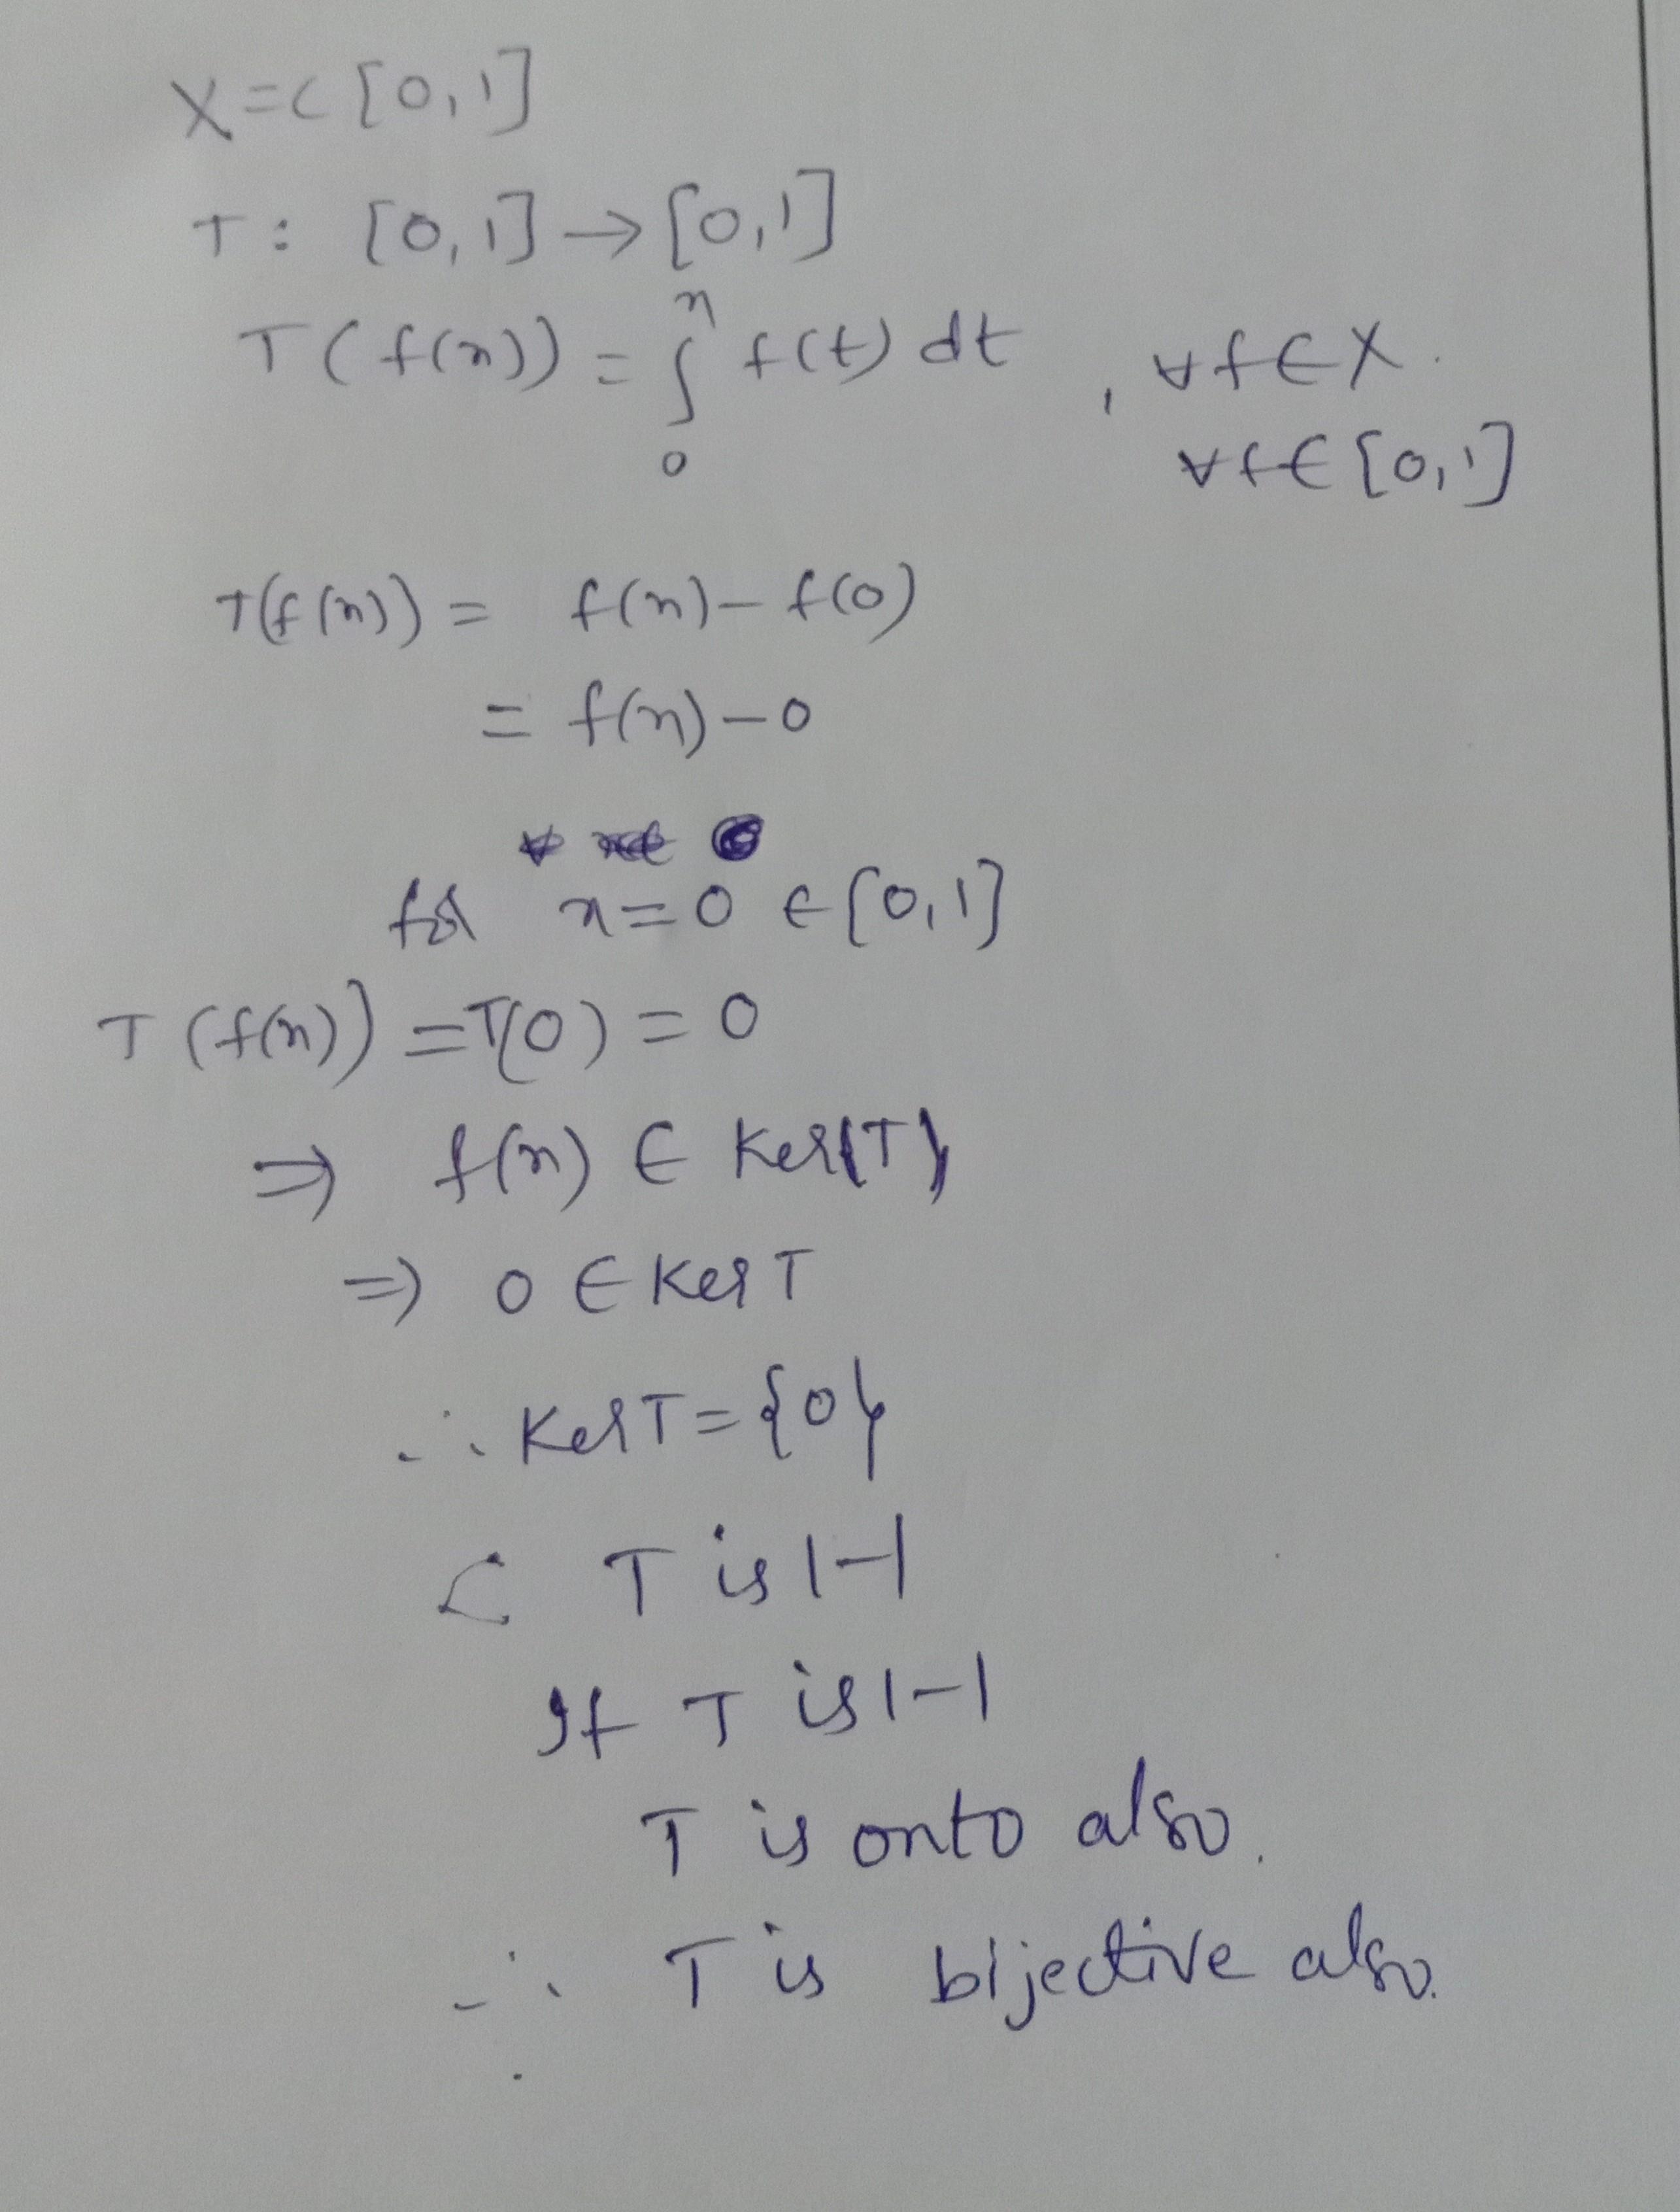 X=C[0,1]
T: [0,1]→[0,1]
T(f(x)) = ∫₀ˣ f(t) dt , ∀f∈X.
∀f∈[0,1]
T(f(x)) = f(x)-f(0)
= f(x)-0
for x=0 ∈[0,1]
T(f(x)) =T(0) = 0
⇒ f(x) ∈ Ker(T)
⇒ 0 ∈ Ker T
∴ Ker T={0}
T is 1-1
If T is 1-1
T is onto also.
∴ T is bijective also.